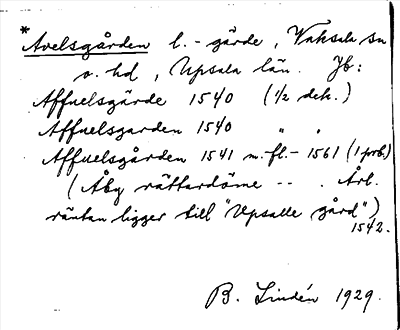 *Avelsgården l. - gärde, Vaksala sn
o. hd, Upsala län. Jb:
Affuelsgärde 1540 (1/2 dek.)
Affuelsgarden 1540 " "
Affuelsgården 1541 m.fl. - 1561 (1 prb.)
(Åby rättardöme -- . Årl.
räntan ligger till "Upsalle gård")
1542.
B. Lindén 1929.